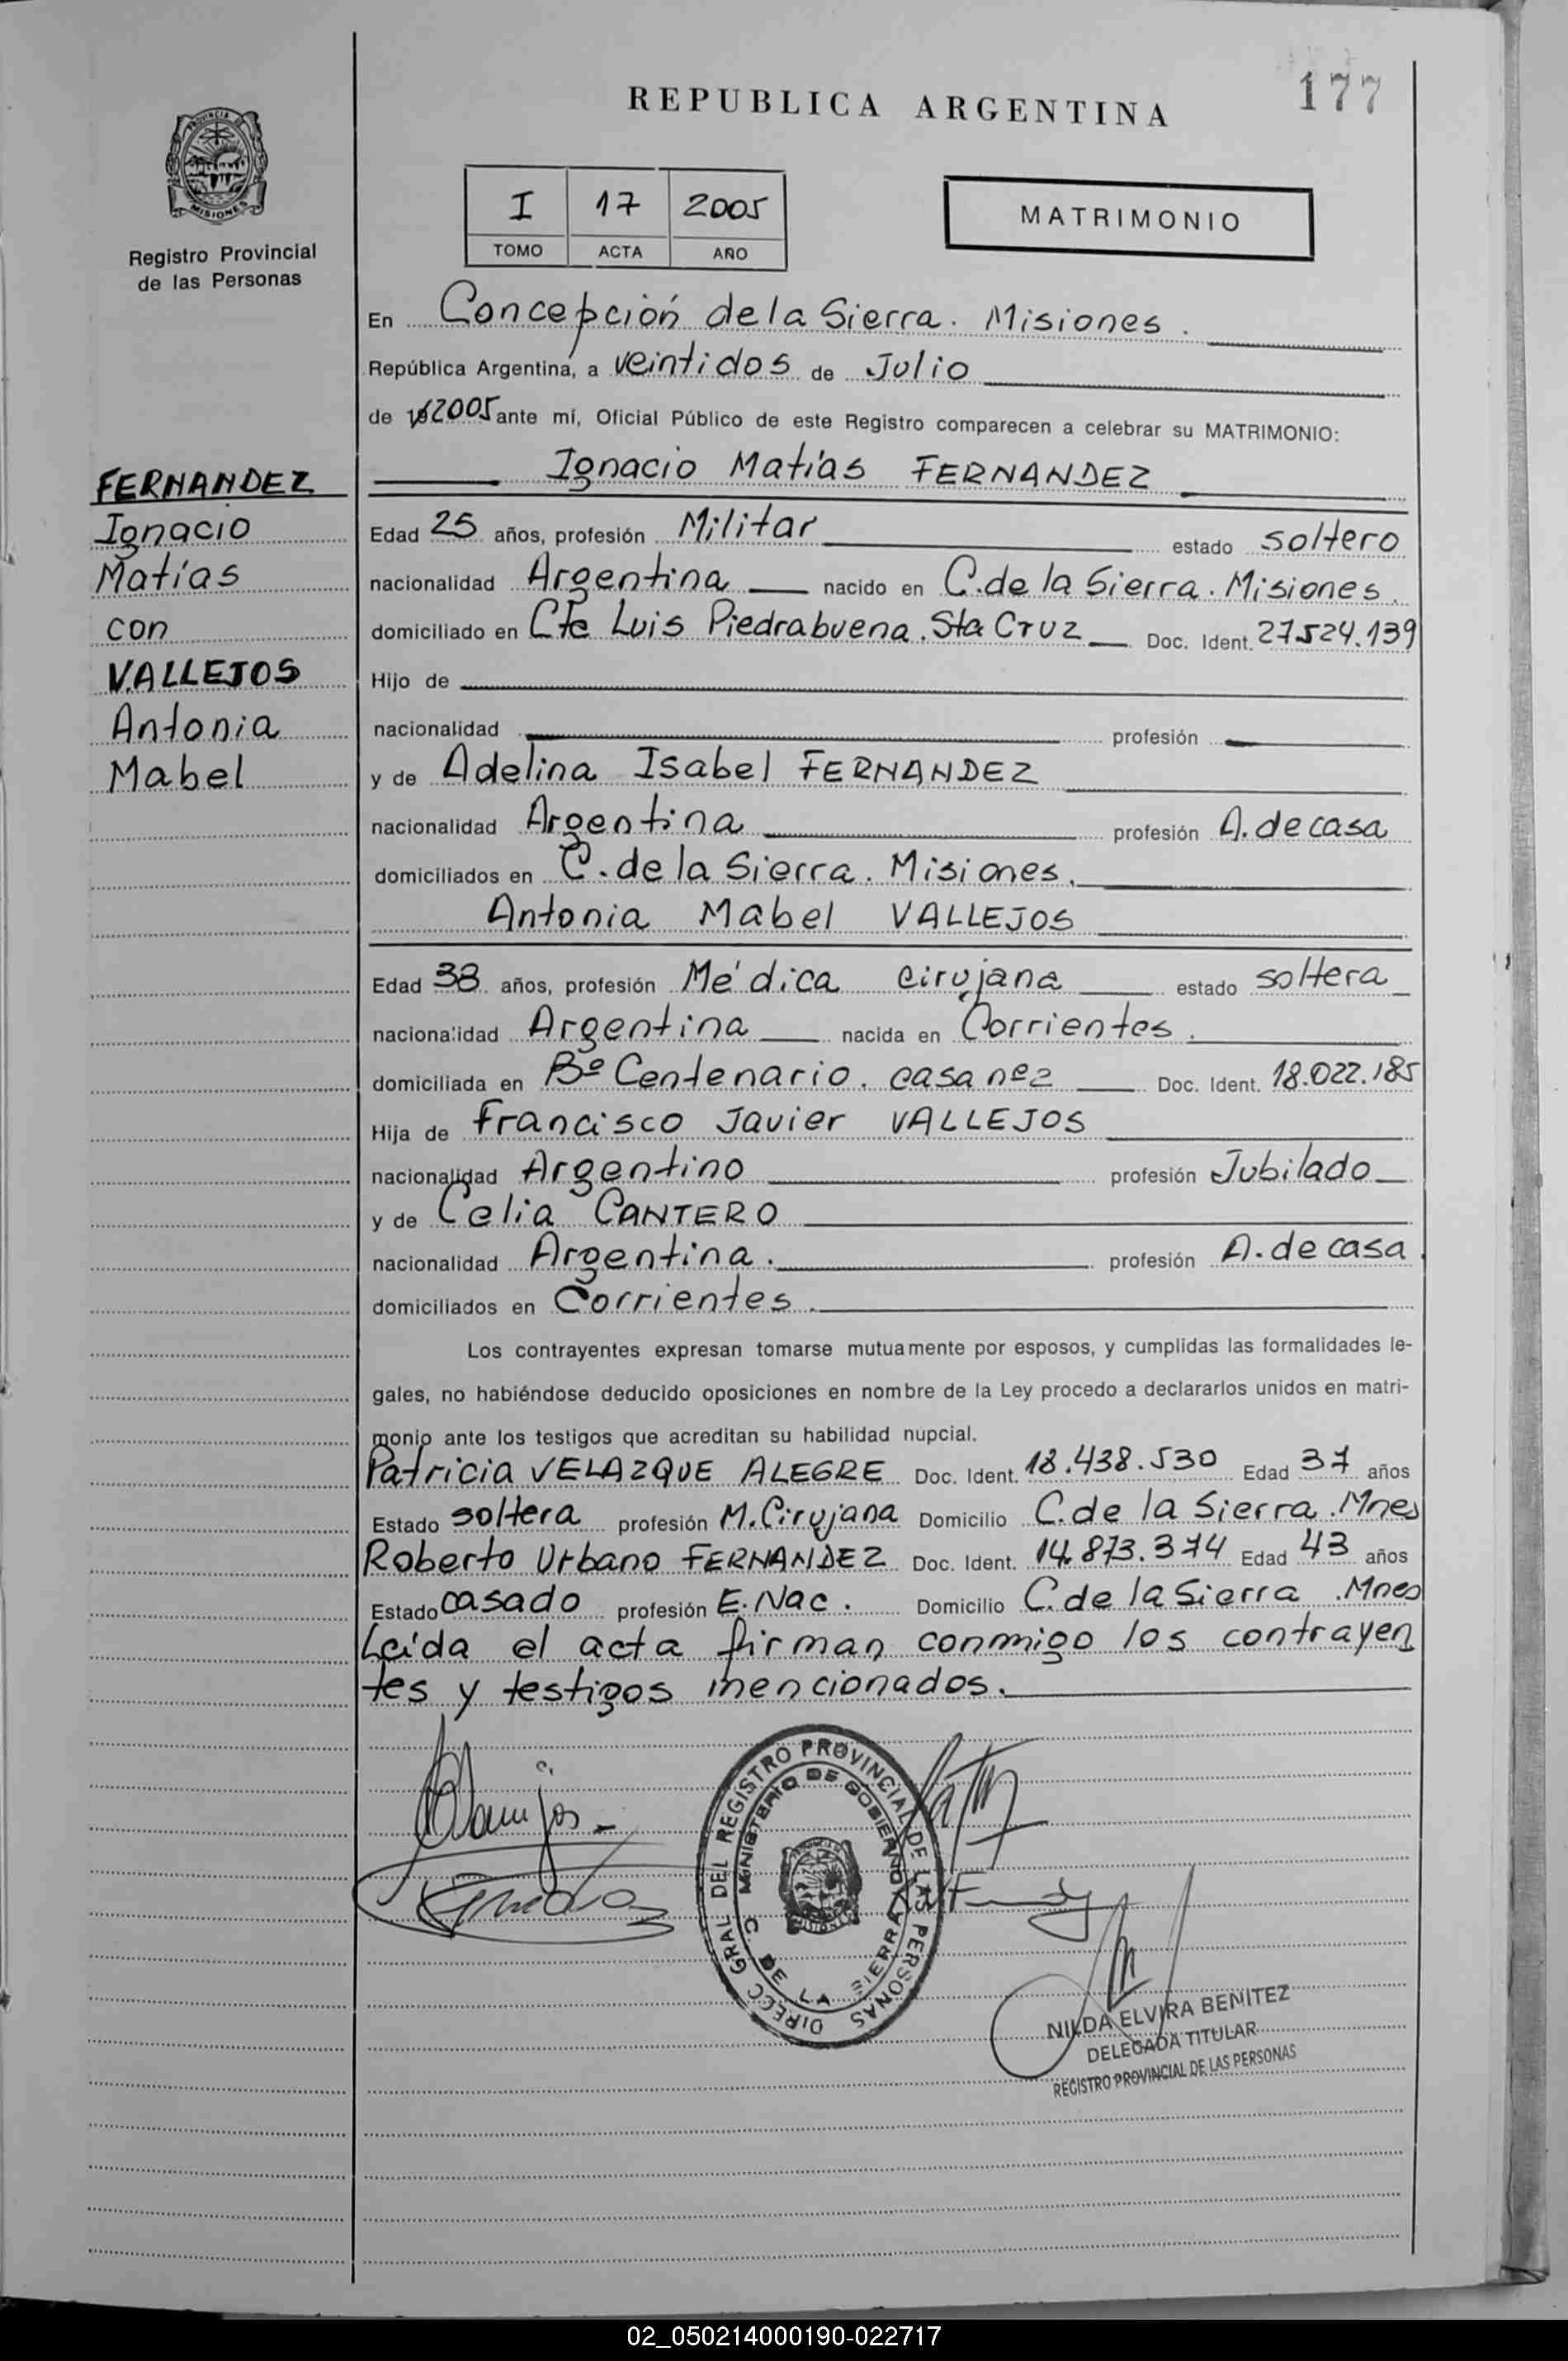 177
REPUBLICA ARGENTINA
PROVINCIA DE
MISIONES
Registro Provincial
de las Personas
I 17 2005
TOMO ACTA AÑO
MATRIMONIO
En Concepción de la Sierra. Misiones.
República Argentina, a veintidos de Julio
de 2005 ante mí, Oficial Público de este Registro comparecen a celebrar su MATRIMONIO:
Ignacio Matías FERNANDEZ
FERNANDEZ
Ignacio
Matías
con
VALLEJOS
Antonia
Mabel
Edad 25 años, profesión Militar estado soltero
nacionalidad Argentina nacido en C. de la Sierra. Misiones.
domiciliado en Cte Luis Piedrabuena. Sta Cruz Doc. Ident. 27.524.139
Hijo de
nacionalidad profesión
y de Adelina Isabel FERNANDEZ
nacionalidad Argentina profesión A. de casa
domiciliados en C. de la Sierra. Misiones.
Antonia Mabel VALLEJOS
Edad 38 años, profesión Médica cirujana estado soltera
nacionalidad Argentina nacida en Corrientes.
domiciliada en Bº Centenario. casa nº2 Doc. Ident. 18.022.185
Hija de Francisco Javier VALLEJOS
nacionalidad Argentino profesión Jubilado
y de Celia CANTERO
nacionalidad Argentina. profesión A. de casa.
domiciliados en Corrientes.
Los contrayentes expresan tomarse mutuamente por esposos, y cumplidas las formalidades le-
gales, no habiéndose deducido oposiciones en nombre de la Ley procedo a declararlos unidos en matri-
monio ante los testigos que acreditan su habilidad nupcial.
Patricia VELAZQUE ALEGRE Doc. Ident. 18.438.530 Edad 37 años
Estado soltera profesión M. Cirujana Domicilio C. de la Sierra. Mnes
Roberto Urbano FERNANDEZ Doc. Ident. 14.873.374 Edad 43 años
Estado casado profesión E. Nac. Domicilio C. de la Sierra. Mnes
Leída el acta firman conmigo los contrayen
tes y testigos mencionados.
DIRECC GRAL DEL REGISTRO PROVINCIAL DE LAS PERSONAS
MINISTERIO DE GOBIERNO
C. DE LA SIERRA
NILDA ELVIRA BENITEZ
DELEGADA TITULAR
REGISTRO PROVINCIAL DE LAS PERSONAS
02_050214000190-022717